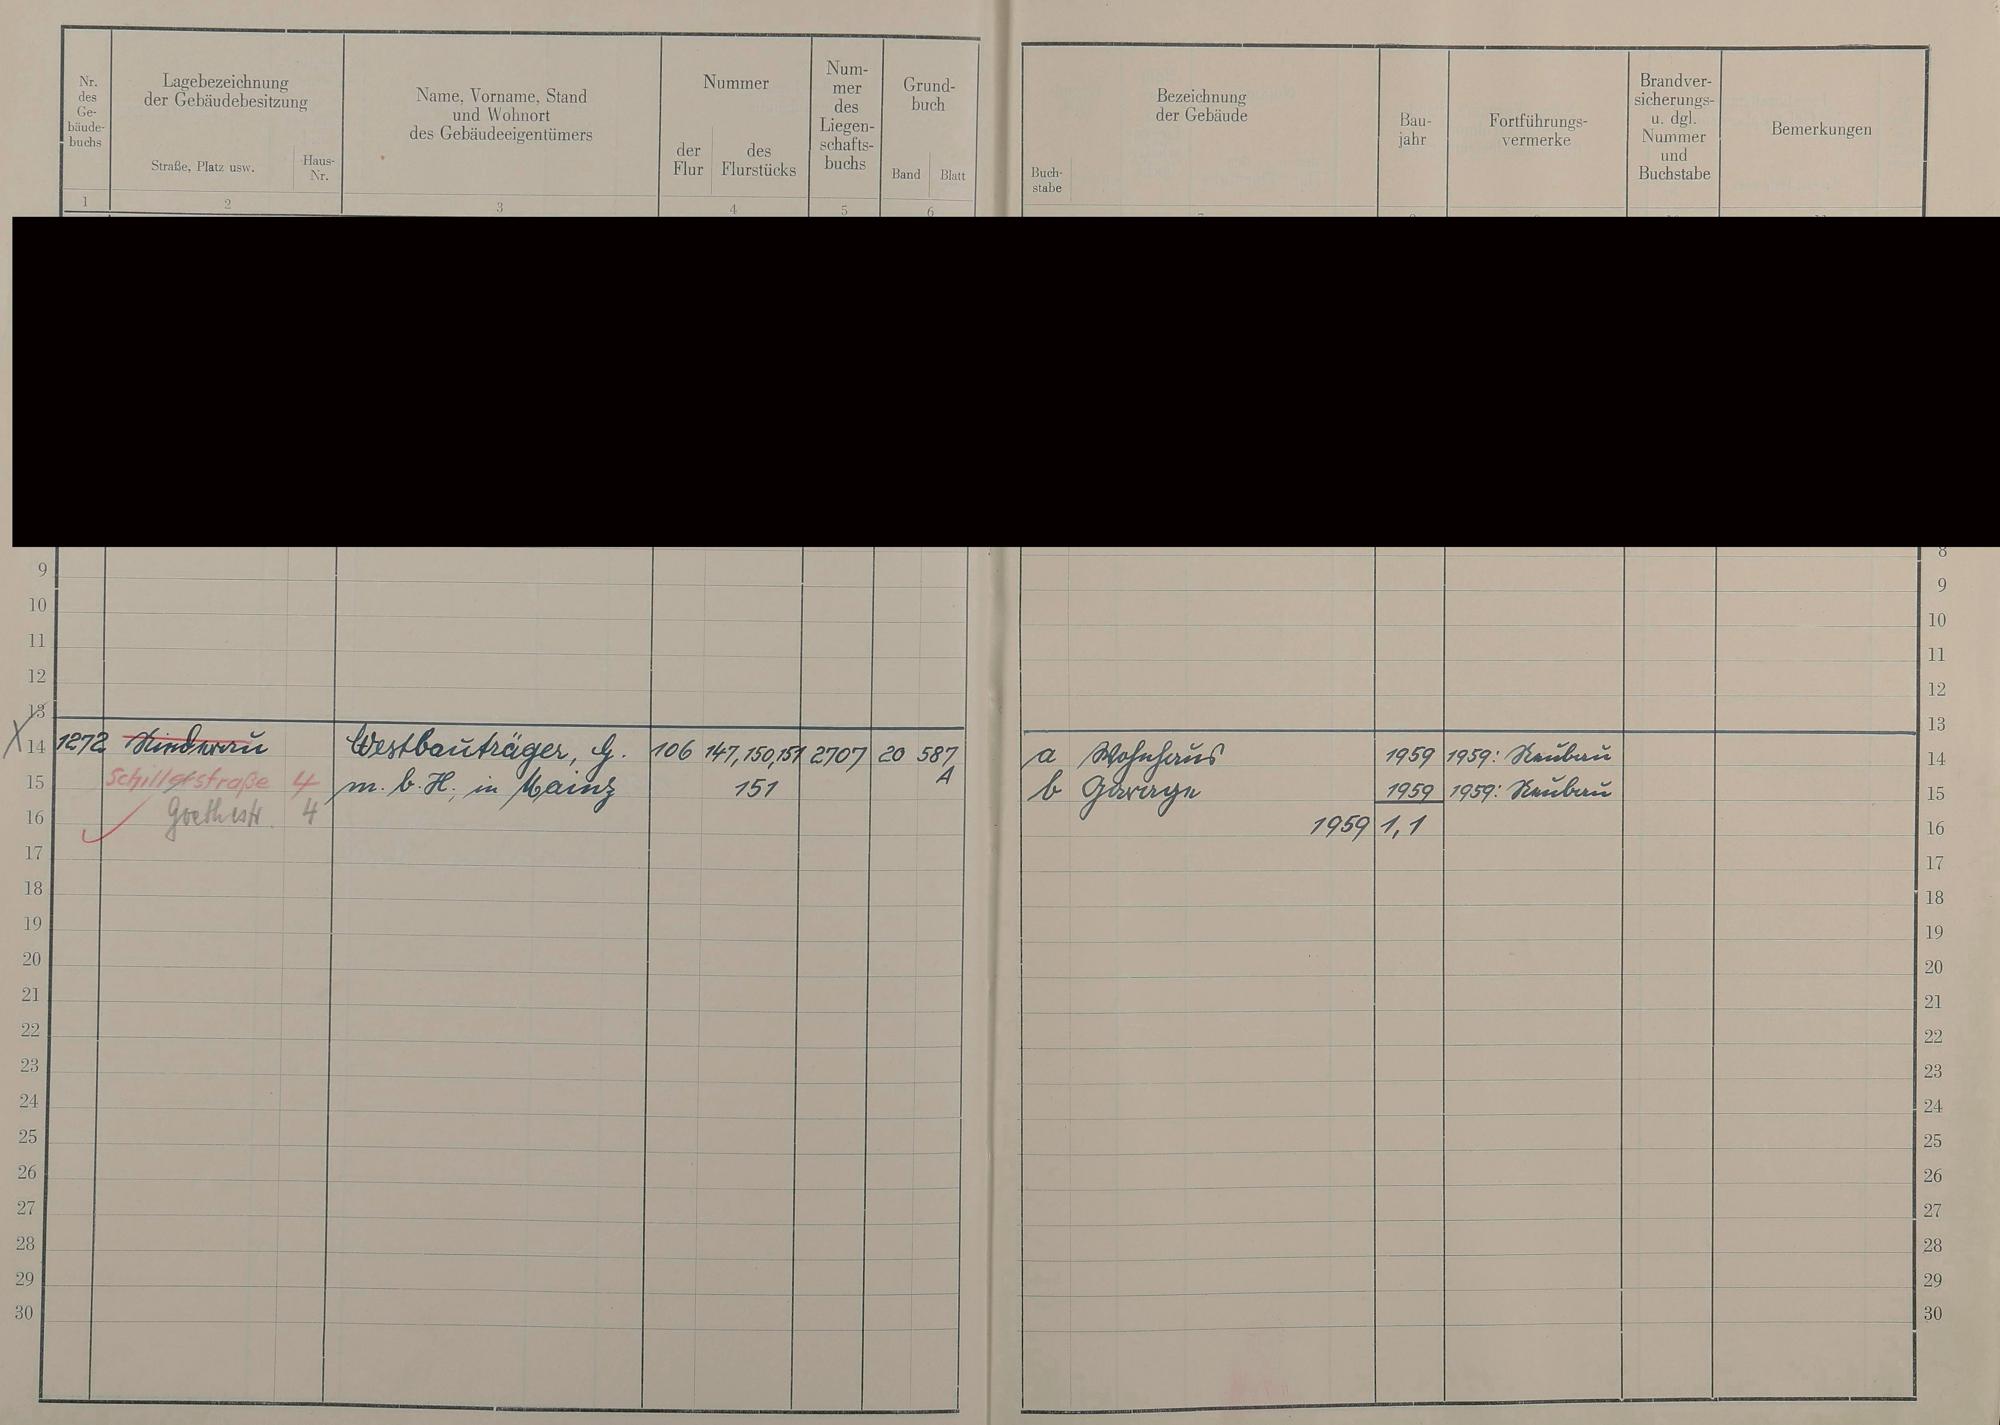 Nr.
des
Ge-
bäude-
buchs
Lagebezeichnung
der Gebäudebesitzung
Straße, Platz usw.
Haus-
Nr.
Name, Vorname, Stand
und Wohnort
des Gebäudeeigentümers
Nummer
der
Flur
des
Flurstücks
Num-
mer
des
Liegen-
schafts-
buchs
Grund-
buch
Band
Blatt
1 2 3 4 5 6
Buch-
stabe
Bezeichnung
der Gebäude
Bau-
jahr
Fortführungs-
vermerke
Brandver-
sicherungs-
u. dgl.
Nummer
und
Buchstabe
Bemerkungen
8
9 9
10 10
11 11
12 12
13 13
X 14 1272 Niederau Westbauträger, G. 106 147, 150, 151 2707 20 587 a Wohnhaus 1959 1959: Neubau 14
15 Schillerstraße 4 m. b. H., in Mainz 151 A b Garage 1959 1959: Neubau 15
16 Goethestr. 4 1959 1,1 16
17 17
18 18
19 19
20 20
21 21
22 22
23 23
24 24
25 25
26 26
27 27
28 28
29 29
30 30